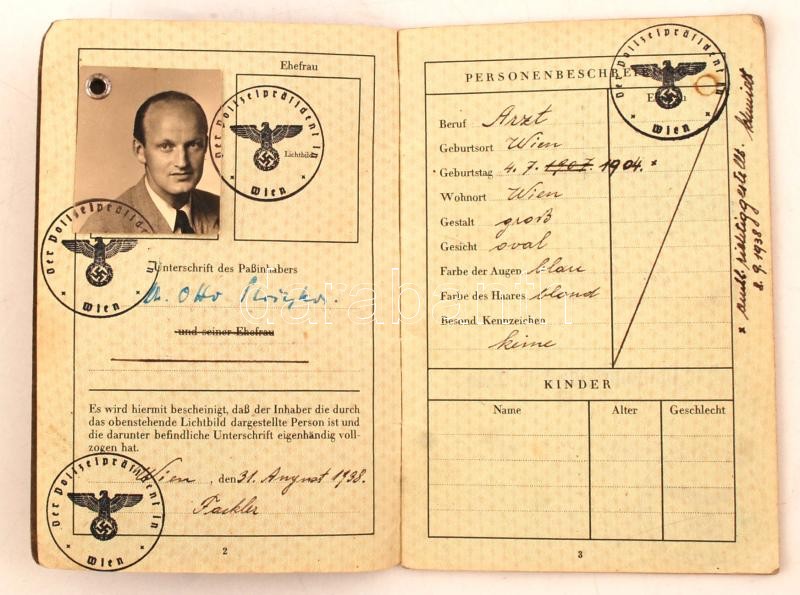 Ehefrau
Lichtbild
Der Polizeipräsident in
Wien
Der Polizeipräsident in
Wien
Unterschrift des Paßinhabers
Dr. Otto
und seiner Ehefrau
Es wird hiermit bescheinigt, daß der Inhaber die durch
das obenstehende Lichtbild dargestellte Person ist und
die darunter befindliche Unterschrift eigenhändig voll-
zogen hat.
Wien, den 31. August 1938.
Fackler
Der Polizeipräsident in
Wien
2
PERSONENBESCHREI
Der Polizeipräsident in
Wien
Beruf Arzt
Geburtsort Wien
Geburtstag 4. 7. 1907. 1904. *
Wohnort Wien
Gestalt groß
Gesicht oval
Farbe der Augen blau
Farbe des Haares blond
Besond. Kennzeichen
keine
KINDER
Name Alter Geschlecht
3
* amtl. richtiggestellt.
8. 9. 1938
darabanth